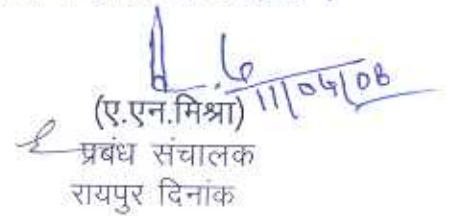 11/04/08
(ए.एन.मिश्रा)
प्रबंध संचालक
रायपुर दिनांक